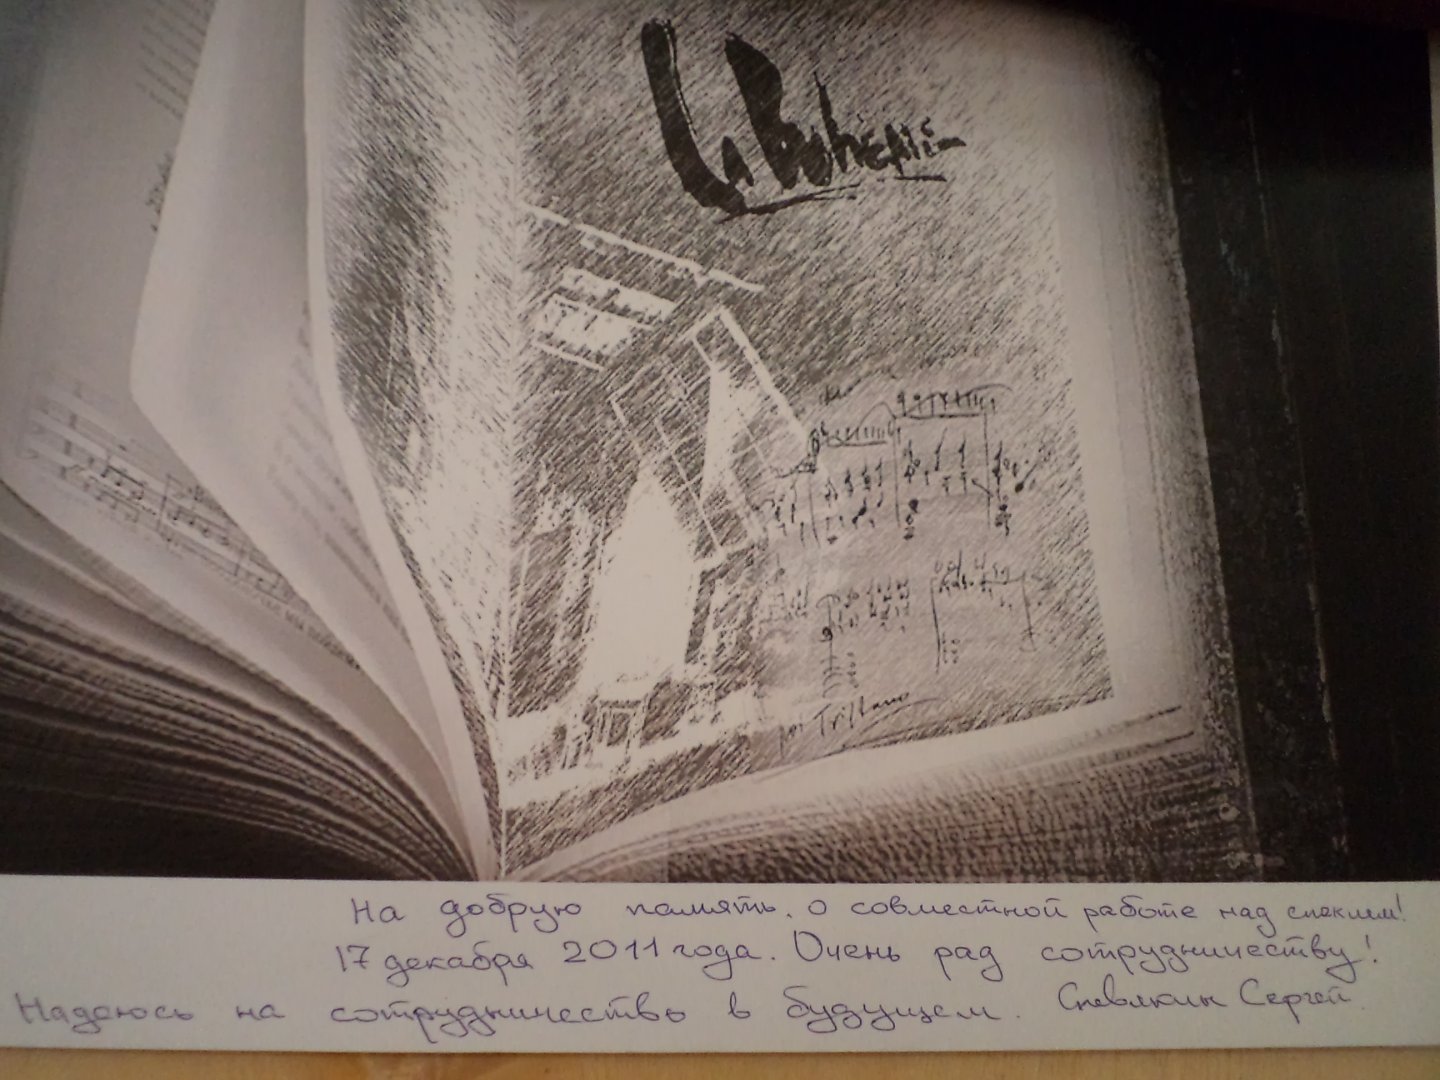 La Bohème
На добрую память. о совместной работе над спектем!
17 декабря 2011 года. Очень рад сотрудничеству!
Надеюсь на сотрудничество в будущем. Спевякин Сергей.